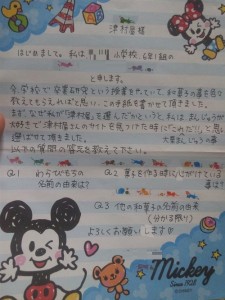 津村屋様
はじめまして。私は 小学校 6年1組の
と申します。
今、学校で卒業研究という授業をやっていて、和菓子の事を色々
教えてもらえればと思い、この手紙を書かせて頂きました。
まず、なぜ私が「津村屋」を選んだかというと、私は、まんじゅうが
大好きで津村屋さんのサイトを見つけた時に「このだ!」と思い
選ばせて頂きました。
大栗まんじゅうの事
以下の質問の答えを教えて下さい。
Q.1 わらびもちの
名前の由来は?
Q.2 菓子を作る時に心がけている
事は?
Q.3 他の和菓子の名前の由来
(分かる限り)
よろしくお願いします!!
Mickey
Since 1928